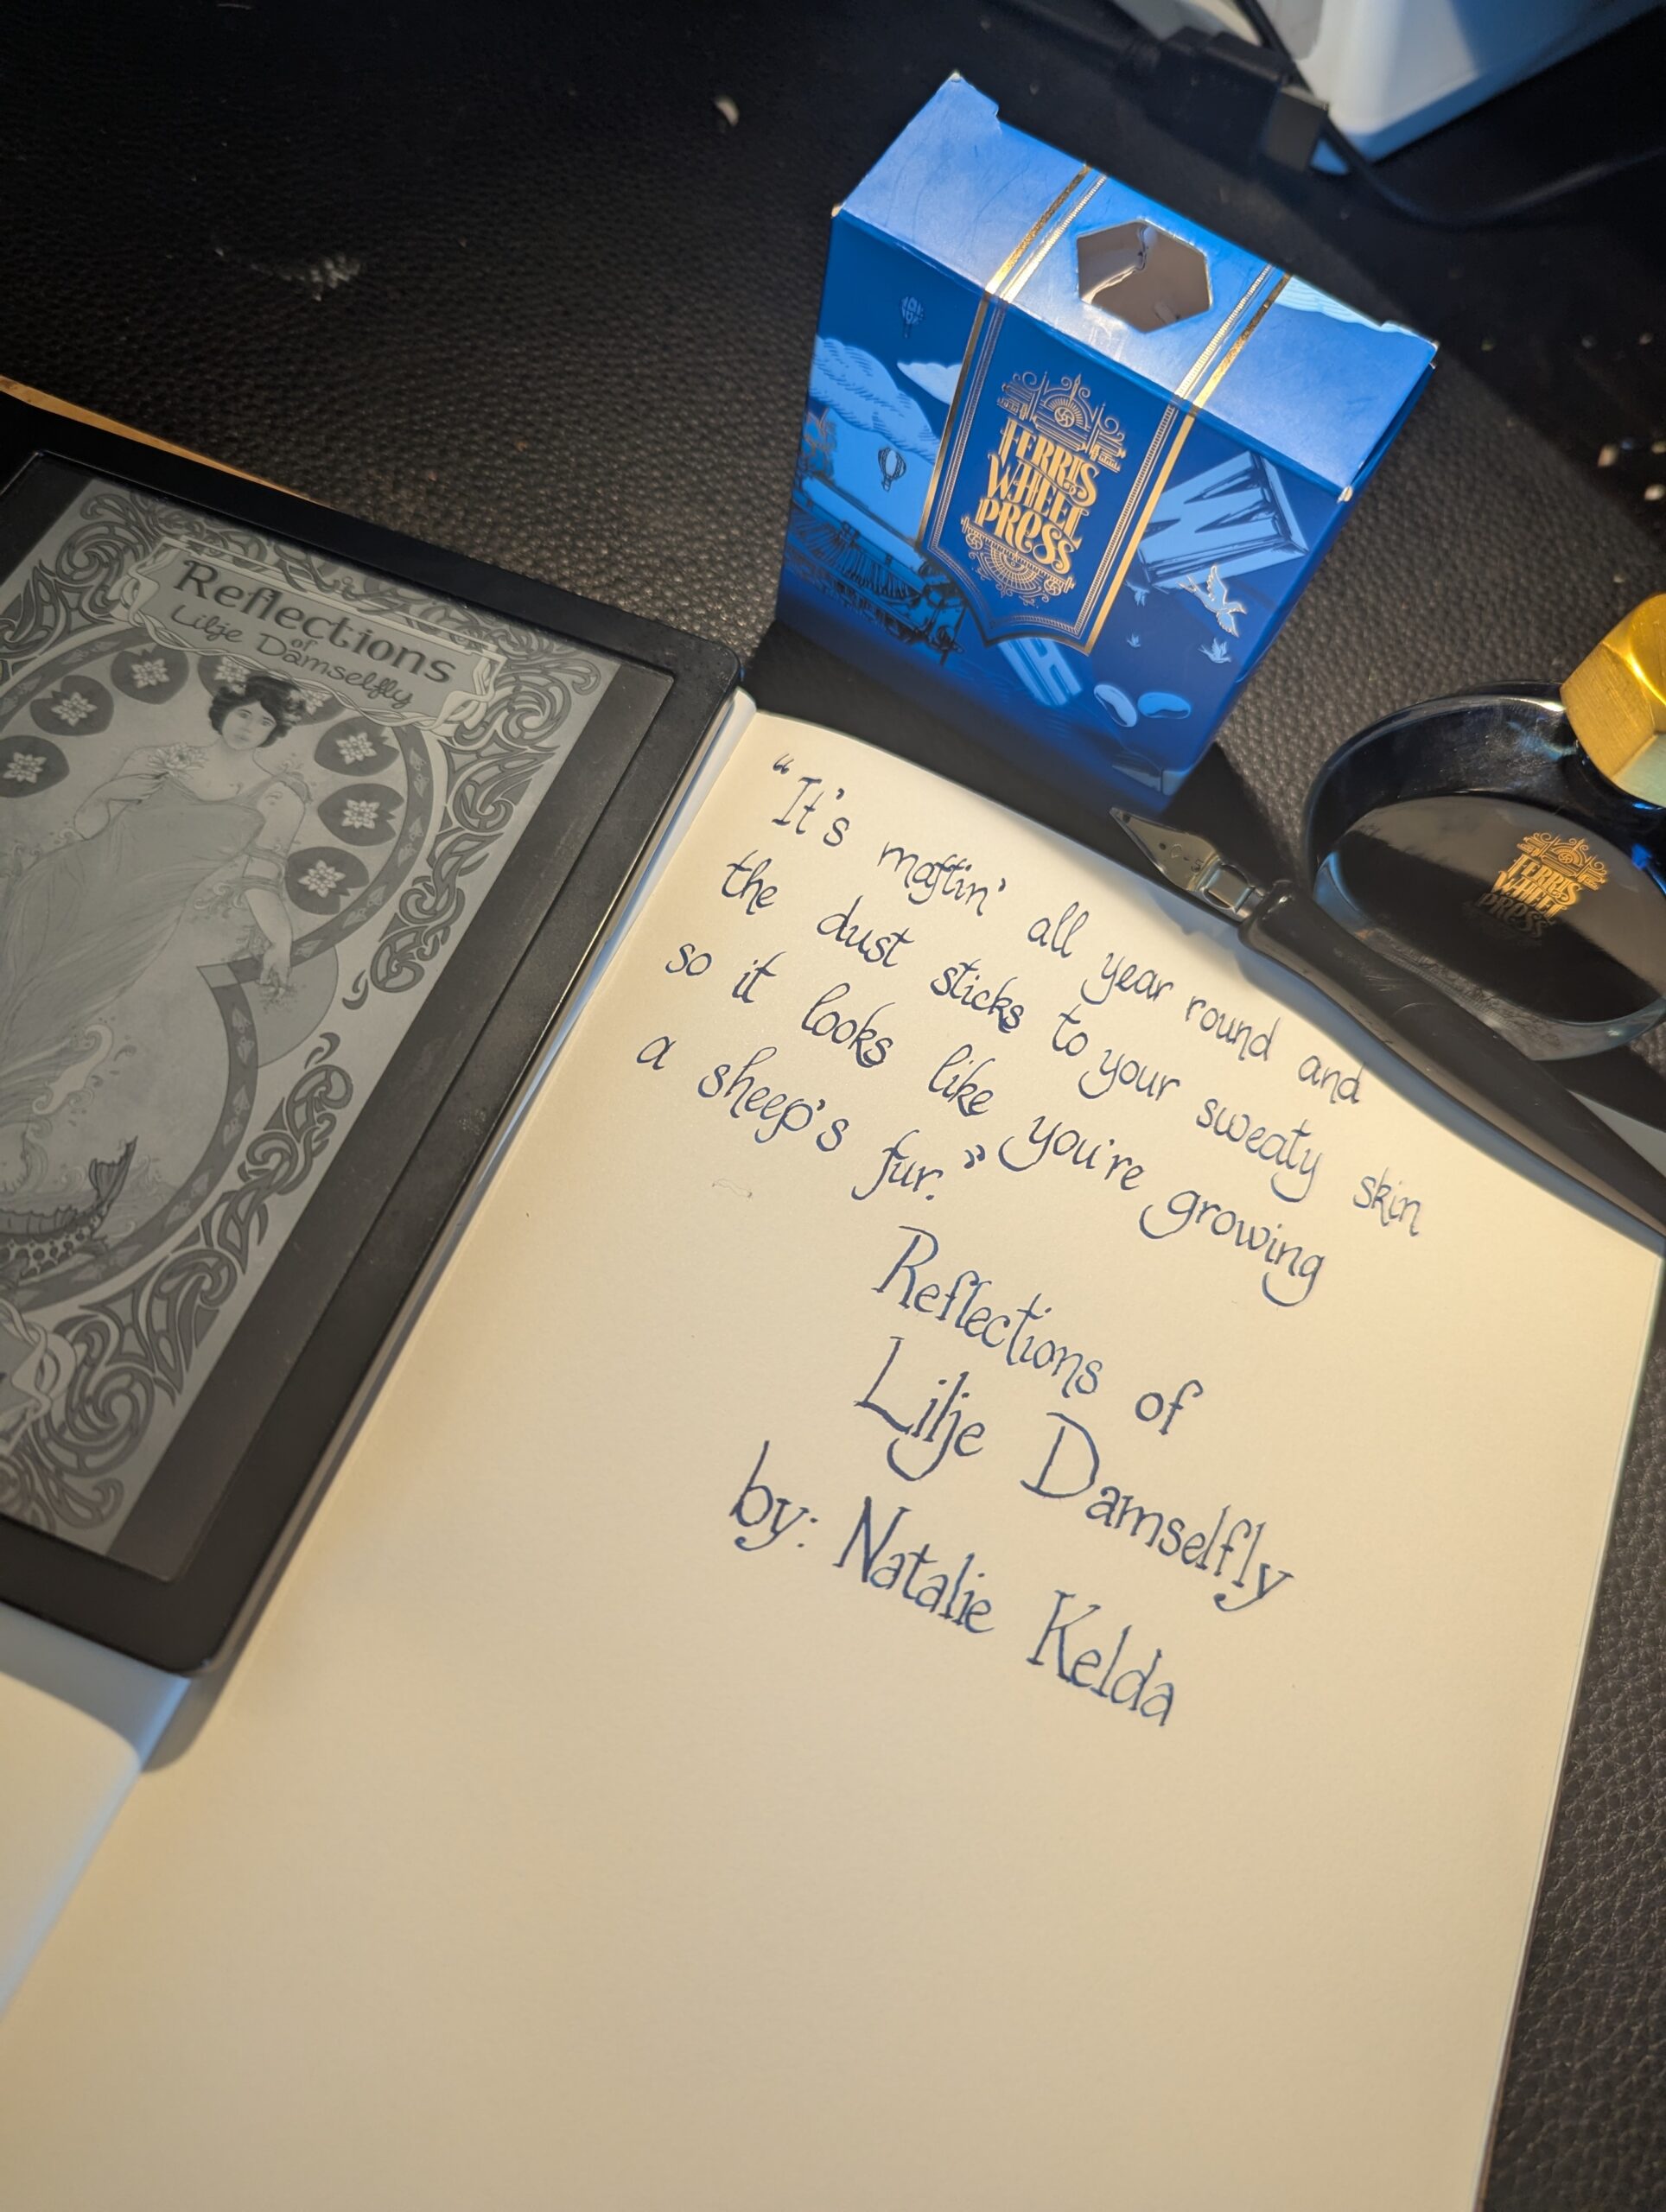 Reflections
of
Lilje Damselfly
FERRIS
WHEEL
PRESS
FERRIS
WHEEL
PRESS
“It's maftin' all year round and
the dust sticks to your sweaty skin
so it looks like you're growing
a sheep's fur.”
Reflections of
Lilje Damselfly
by: Natalie Kelda